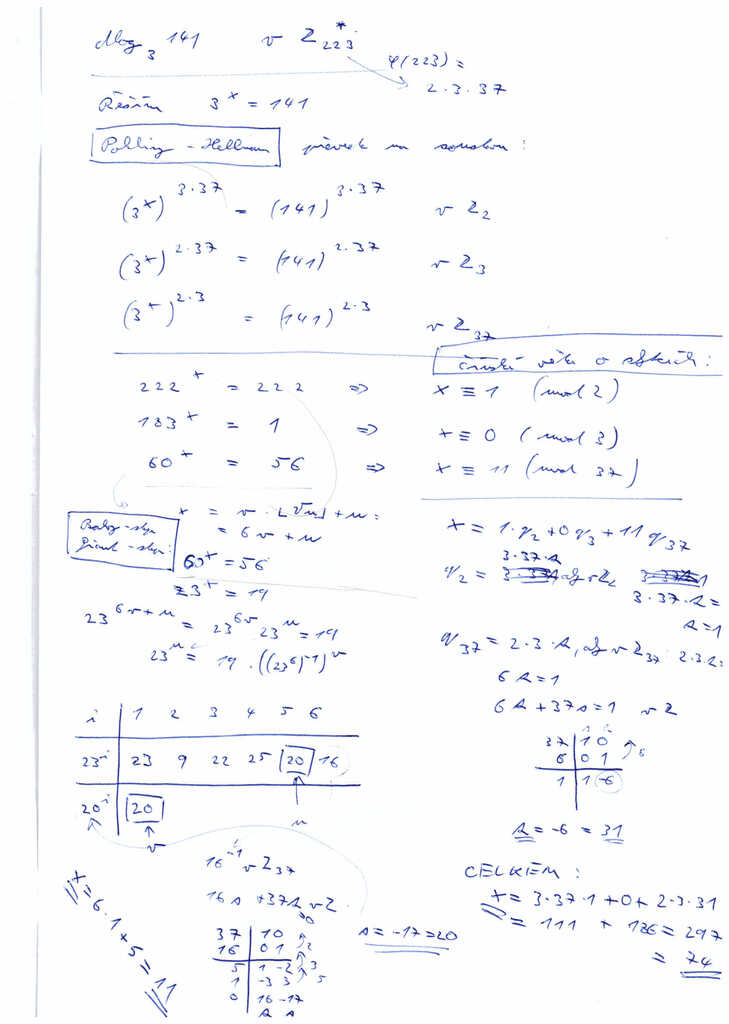 dlog₃ 141 v Z*₂₂₃
φ(223) =
2·3·37
Řešíme 3^x = 141
Pohling - Hellman převede na soustavu:
(3^x)^3·37 = (141)^3·37 v Z₂
(3^x)^2·37 = (141)^2·37 v Z₃
(3^x)^2·3 = (141)^2·3 v Z₃₇
čínská věta o zbytcích:
222^x = 222 => x ≡ 1 (mod 2)
183^x = 1 => x ≡ 0 (mod 3)
60^x = 56 => x ≡ 11 (mod 37)
x = v · ⌊√n⌋ + u =
= 6v + u
Baby-step
Giant-step:
60^x = 56
23^x = 19
23^6v+u = 23^6v 23^u = 19
23^u = 19 · ((23^6)^-1)^v
i 1 2 3 4 5 6
23^i 23 9 22 25 20 16
20^i 20
v
u
16^-1 v Z₃₇
16s + 37r v Z
37 1 0
16 0 1 2
5 1 -2 3
1 -3 3 5
0 16 -17
r s
s = -17 = 20
x = 6·1 + 5 = 11
x = 1·q₂ + 0q₃ + 11q₃₇
3·37·r
q₂ =
3·37·r =
r = 1
q₃₇ = 2·3·r, v Z₃₇ 2·3·r =
6r = 1
6r + 37s = 1 v Z
37 1 0
6 0 1 6
1 1 -6
r = -6 = 31
CELKEM:
x = 3·37·1 + 0 + 2·3·31
= 111 + 186 = 297
= 74